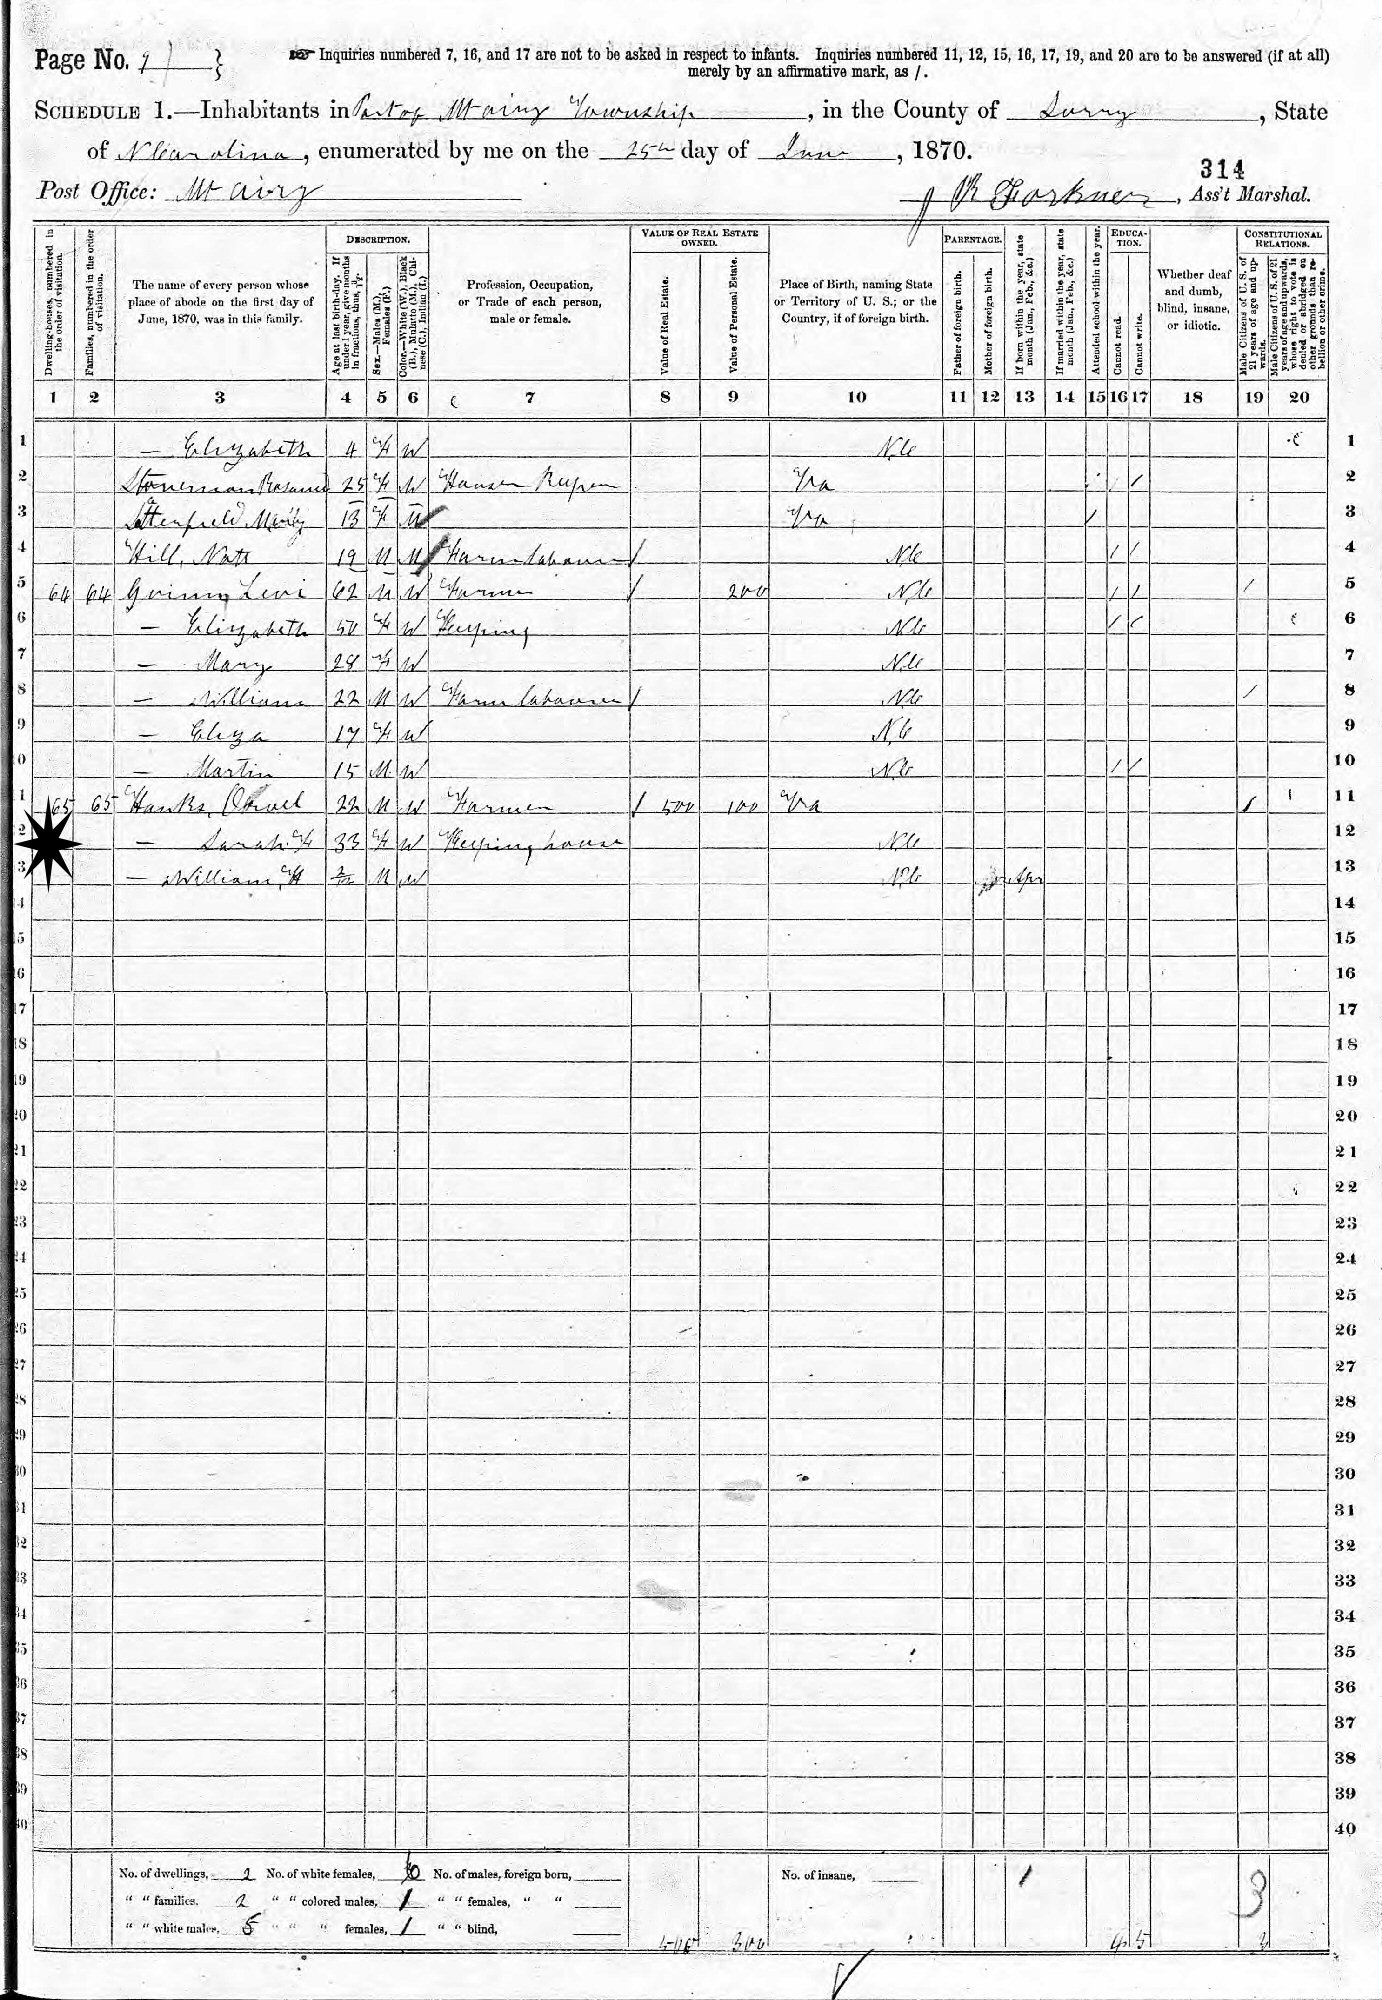 Page No. 9
☞ Inquiries numbered 7, 16, and 17 are not to be asked in respect to infants. Inquiries numbered 11, 12, 15, 16, 17, 19, and 20 are to be answered (if at all)
merely by an affirmative mark, as /.
SCHEDULE 1.—Inhabitants in Part of Mt airy Township, in the County of Surry, State
of N Carolina, enumerated by me on the 25th day of June, 1870.
314
Post Office: Mt airy J R Forkner, Ass't Marshal.
Dwelling-houses, numbered in the order of visitation.
Families, numbered in the order of visitation.
The name of every person whose place of abode on the first day of June, 1870, was in this family.
DESCRIPTION.
Age at last birth-day. If under 1 year, give months in fractions, thus, 3/12.
Sex.—Males (M.), Females (F.)
Color.—White (W.), Black (B.), Mulatto (M.), Chinese (C.), Indian (I.)
Profession, Occupation, or Trade of each person, male or female.
VALUE OF REAL ESTATE OWNED.
Value of Real Estate.
Value of Personal Estate.
Place of Birth, naming State or Territory of U. S.; or the Country, if of foreign birth.
PARENTAGE.
Father of foreign birth.
Mother of foreign birth.
If born within the year, state month (Jan., Feb., &c.)
If married within the year, state month (Jan., Feb., &c.)
Attended school within the year.
EDUCATION.
Cannot read.
Cannot write.
Whether deaf and dumb, blind, insane, or idiotic.
CONSTITUTIONAL RELATIONS.
Male Citizens of U. S. of 21 years of age and upwards.
Male Citizens of U. S. of 21 years of age and upwards, whose right to vote is denied or abridged on other grounds than rebellion or other crime.
1 2 3 4 5 6 7 8 9 10 11 12 13 14 15 16 17 18 19 20
1 — Elizabeth 4 F W N.C 1
2 Stoneman 25 F W Va / / 2
3 13 F M Va / 3
4 Hill, Natt 19 M M Farm labourer / N.C / / 4
5 64 64 Levi 62 M W Farmer / 200 N.C / / / 5
6 — Elizabeth 50 F W Keeping N.C / / 6
7 — Mary 28 F W N.C 7
8 — William 22 M W Farm labourer / N.C / 8
9 — Eliza 17 F W N.C 9
10 — Martin 15 M W N.C / / 10
11 65 65 Hanks, 22 M W Farmer / 500 100 Va / 11
12 — Sarah F 33 F W Keeping house N.C 12
13 — William H 2/12 M W N.C Apr 13
14 14
15 15
16 16
17 17
18 18
19 19
20 20
21 21
22 22
23 23
24 24
25 25
26 26
27 27
28 28
29 29
30 30
31 31
32 32
33 33
34 34
35 35
36 36
37 37
38 38
39 39
40 40
No. of dwellings, 2 No. of white females, 6 No. of males, foreign born, No. of insane, 1 3
" " families. 2 " " colored males, 1 " " females, " "
" " white males, 5 " " " females, 1 " " blind,
500 300 4 5 3